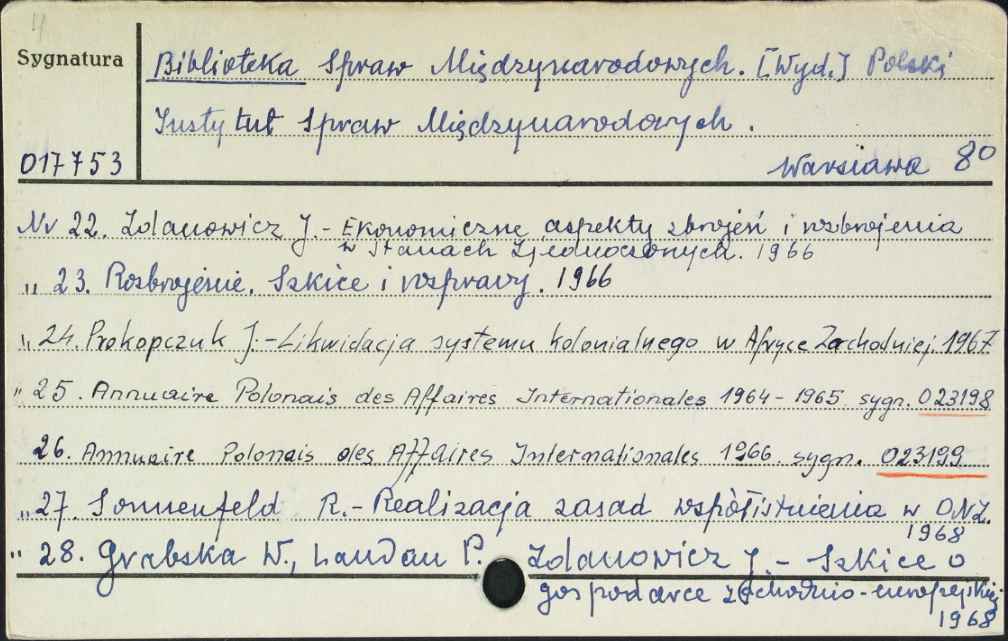 4
Sygnatura
Biblioteka Spraw Międzynarodowych. [Wyd.] Polski
Instytut Spraw Międzynarodowych.
017753
Warszawa 8º
Nr 22. Zdanowicz J.- Ekonomiczne aspekty zbrojeń i rozbrojenia
w Stanach Zjednoczonych. 1966
" 23. Rozbrojenie. Szkice i rozprawy. 1966
" 24. Prokopczuk J.-Likwidacja systemu kolonialnego w Afryce Zachodniej. 1967
" 25. Annuaire Polonais des Affaires Internationales 1964-1965 sygn. 023198
26. Annuaire Polonais des Affaires Internationales 1966. sygn. 023199
" 27 Sonnenfeld R.-Realizacja zasad współistnienia w ONZ.
1968
" 28. Grabska W., Landau P. Zdanowicz J.- Szkice o
gospodarce zachodnio-europejskiej
1968